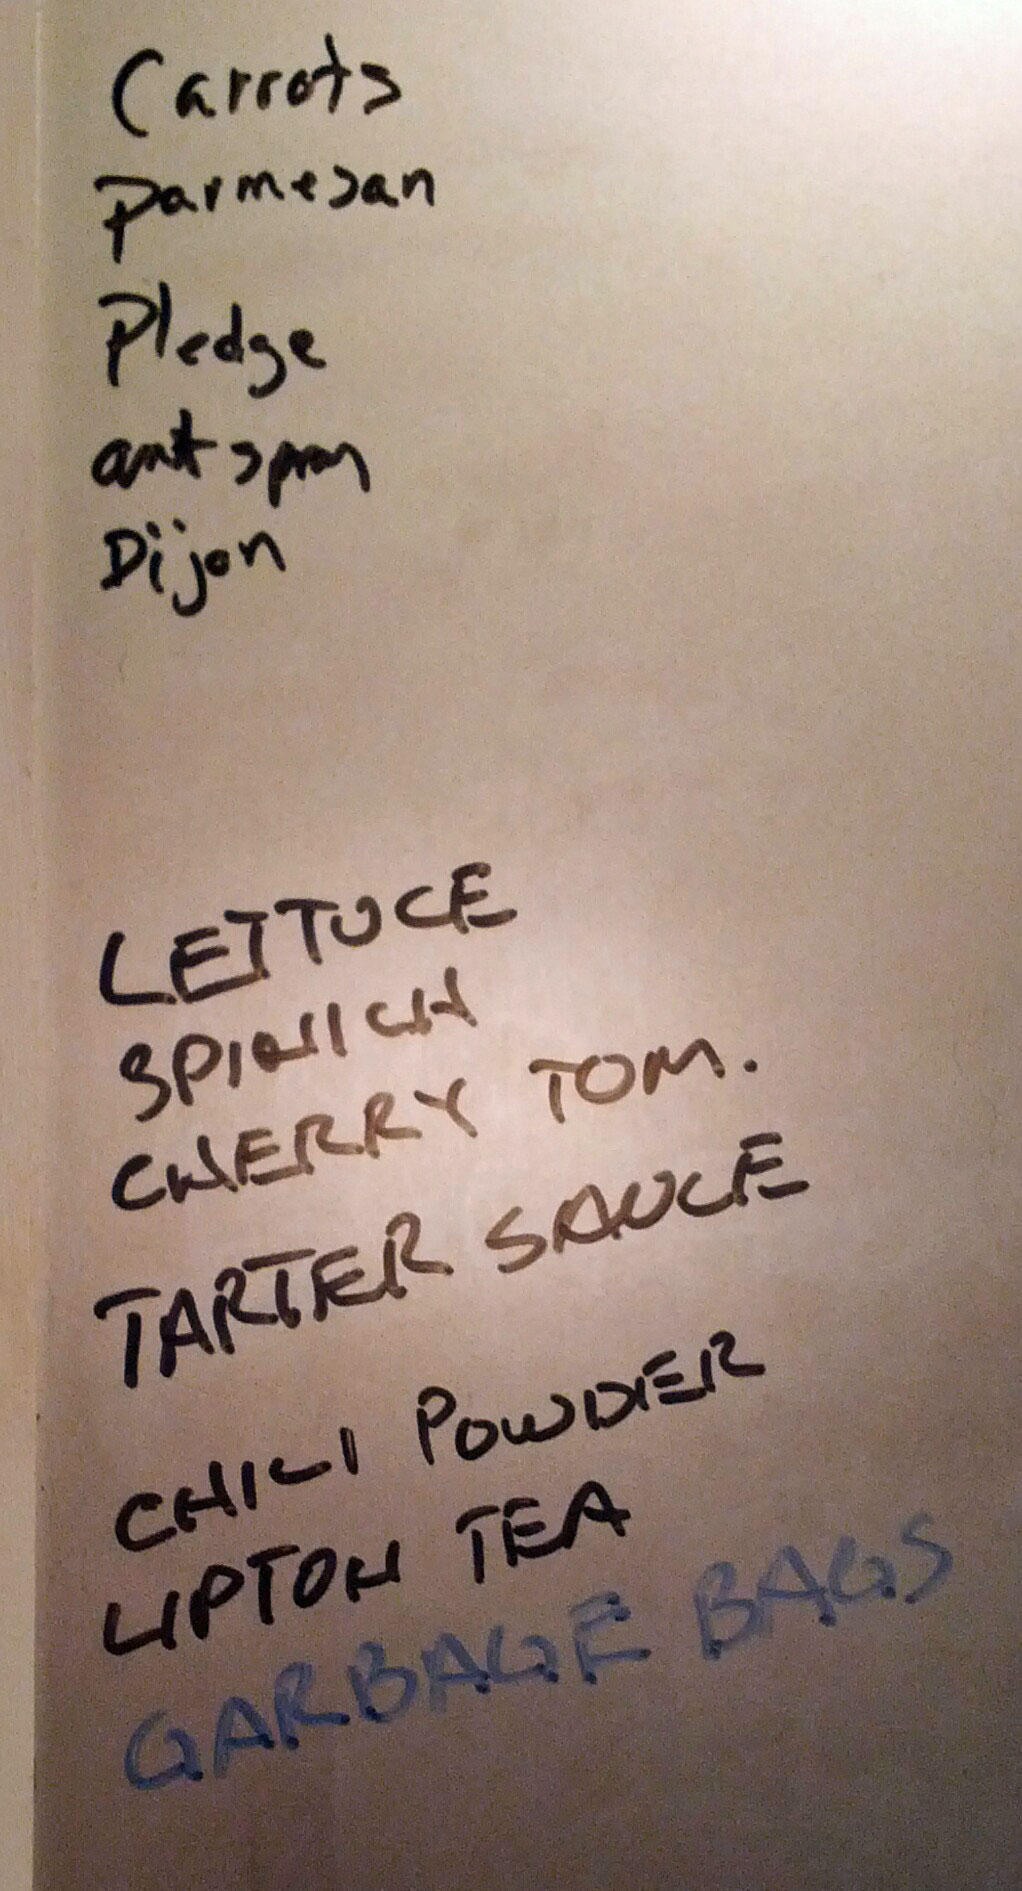 Carrots
Parmesan
Pledge
ant spray
Dijon
LETTUCE
SPINICH
CHERRY TOM.
TARTER SAUCE
CHILI POWDER
LIPTON TEA
GARBAGE BAGS